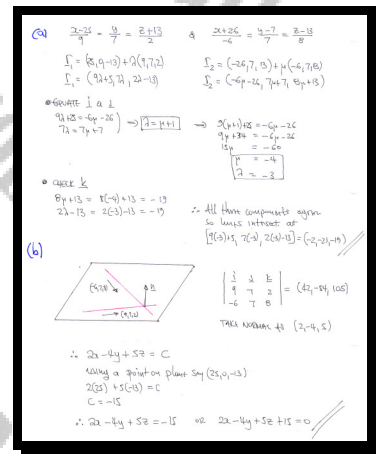 (a) (x-25)/9 = y/7 = (z+13)/2 & (x+26)/-6 = (y-7)/7 = (z-13)/8
r₁ = (25,0,-13)+λ(9,7,2) r₂ = (-26,7,13)+μ(-6,7,8)
r₁ = (9λ+25, 7λ, 2λ-13) r₂ = (-6μ-26, 7μ+7, 8μ+13)
• EQUATE i & j
9λ+25 = -6μ-26
7λ = 7μ+7
⇒ λ = μ+1 ⇒ 9(μ+1)+25 = -6μ-26
9μ+34 = -6μ-26
15μ = -60
μ = -4
λ = -3
• CHECK k
8μ+13 = 8(-4)+13 = -19
2λ-13 = 2(-3)-13 = -19
∴ All three components agree
so lines intersect at
[9(-3)+25, 7(-3), 2(-3)-13] = (-2,-21,-19)
(b)
(-6,7,8)
n
(9,7,2)
| i j k |
| 9 7 2 | = (42,-84,105)
| -6 7 8 |
TAKE NORMAL AS (2,-4,5)
∴ 2x-4y+5z = C
using a point on plane say (25,0,-13)
2(25) + 5(-13) = C
C = -15
∴ 2x-4y+5z = -15 OR 2x-4y+5z+15 = 0